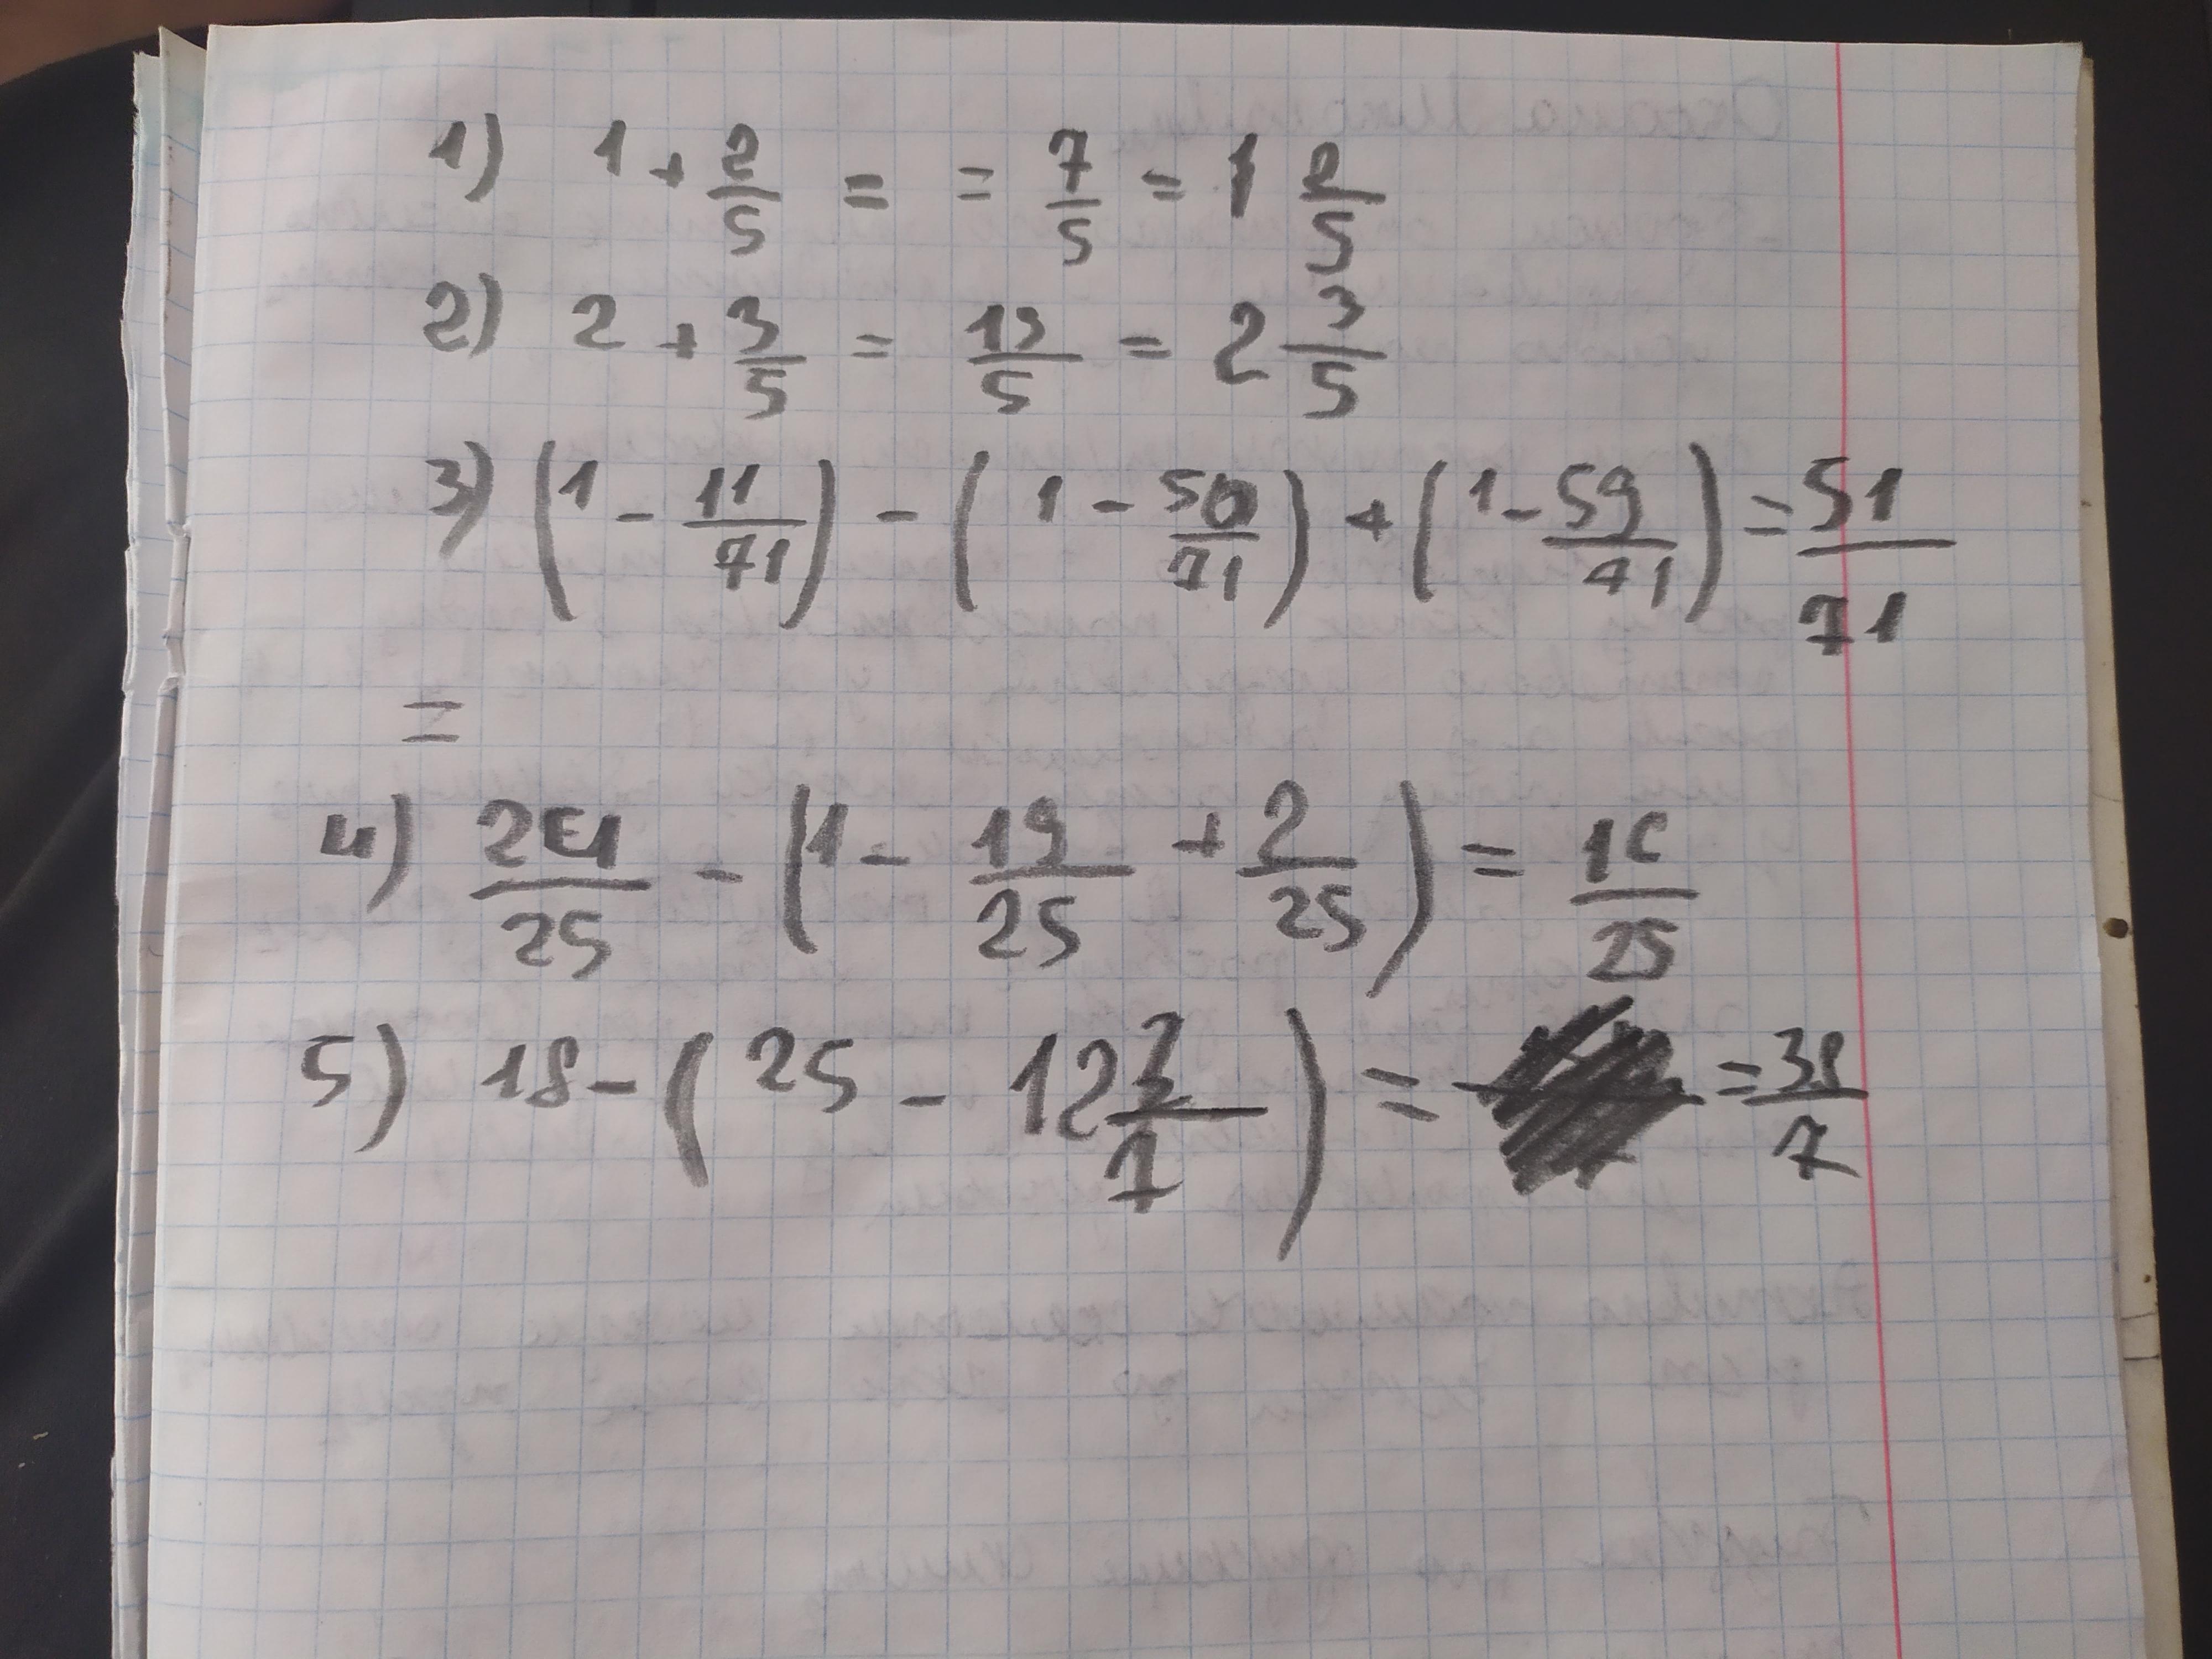 1) 1 + 2/5 = = 7/5 = 1 2/5
2) 2 + 3/5 = 13/5 = 2 3/5
3) (1 - 11/71) - (1 - 50/71) + (1 - 59/71) = 51/71
=
4) 24/25 - (1 - 19/25 + 2/25) = 16/25
5) 18 - (25 - 12 3/7) = = 38/7